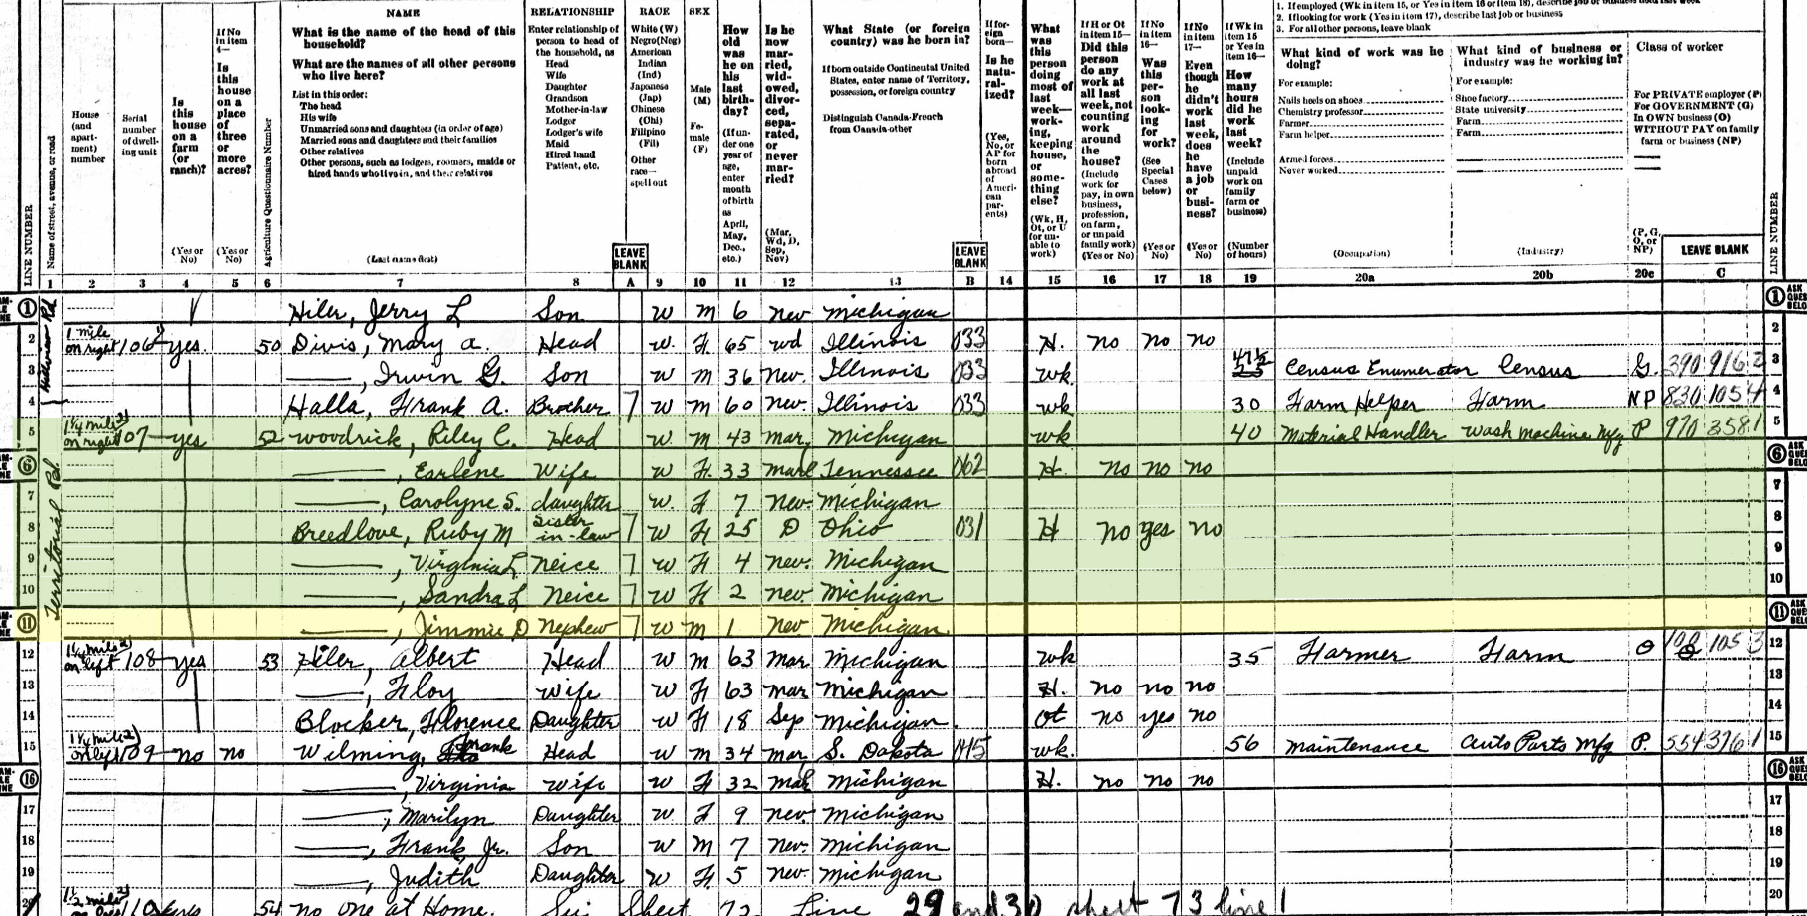 1. If employed (Wk in item 15, or Yes in item 16 or item 18), describe job or business held last week
2. If looking for work (Yes in item 17), describe last job or business
3. For all other persons, leave blank
LINE NUMBER
Name of street, avenue, or road
House (and apartment) number
Serial number of dwelling unit
Is this house on a farm (or ranch)? (Yes or No)
If No in item 4— Is this house on a place of three or more acres? (Yes or No)
Agriculture Questionnaire Number
NAME
What is the name of the head of this household?
What are the names of all other persons who live here?
List in this order:
The head
His wife
Unmarried sons and daughters (in order of age)
Married sons and daughters and their families
Other relatives
Other persons, such as lodgers, roomers, maids or hired hands who live in, and their relatives
(Last name first)
RELATIONSHIP
Enter relationship of person to head of the household, as
Head
Wife
Daughter
Grandson
Mother-in-law
Lodger
Lodger's wife
Maid
Hired hand
Patient, etc.
LEAVE BLANK
RACE
White (W)
Negro (Neg)
American Indian (Ind)
Japanese (Jap)
Chinese (Chi)
Filipino (Fil)
Other race—spell out
SEX
Male (M)
Female (F)
How old was he on his last birthday?
(If under one year of age, enter month of birth as April, May, Dec., etc.)
Is he now married, widowed, divorced, separated, or never married?
(Mar, Wd, D, Sep, Nev)
What State (or foreign country) was he born in?
If born outside Continental United States, enter name of Territory, possession, or foreign country
Distinguish Canada-French from Canada-other
LEAVE BLANK
If foreign born— Is he naturalized?
(Yes, No, or AP for born abroad of American parents)
What was this person doing most of last week—working, keeping house, or something else?
(Wk, H, Ot, or U for unable to work)
If H or Ot in item 15— Did this person do any work at all last week, not counting work around the house?
(Include work for pay, in own business, profession, on farm, or unpaid family work)
(Yes or No)
If No in item 16— Was this person looking for work?
(See Special Cases below)
(Yes or No)
If No in item 17— Even though he didn't work last week, does he have a job or business?
(Yes or No)
If Wk in item 15 or Yes in item 16— How many hours did he work last week?
(Include unpaid work on family farm or business)
(Number of hours)
What kind of work was he doing?
For example:
Nails heels on shoes
Chemistry professor
Farmer
Farm helper
Armed forces
Never worked
(Occupation)
What kind of business or industry was he working in?
For example:
Shoe factory
State university
Farm
Farm
(Industry)
Class of worker
For PRIVATE employer (P)
For GOVERNMENT (G)
In OWN business (O)
WITHOUT PAY on family farm or business (NP)
(P, G, O, or NP)
LEAVE BLANK
LINE NUMBER
1 2 3 4 5 6 7 8 A 9 10 11 12 13 B 14 15 16 17 18 19 20a 20b 20c C
1 Hiler, Jerry L Son W M 6 Nev Michigan 1
2 1 mile on right 106 yes 50 Divis, Mary A. Head W. F. 65 wd Illinois 033 H. no no no 2
3 ——, Irwin G. Son W M 36 Nev. Illinois 033 wk 47½ Census Enumerator Census G 390 916 2 3
4 Halla, Frank A. Brother 7 W M 60 Nev. Illinois 033 wk 30 Farm Helper Farm NP 830 105 4 4
Territorial Rd.
5 1¼ mile on right 107 yes 52 Woodrick, Riley C. Head W. M 43 mar. Michigan wk 40 Material Handler Wash Machine Mfg P 970 358 1 5
6 ——, Earlene Wife W F. 33 mar Tennessee 062 H. no no no 6
7 ——, Carolyne S. daughter W. F 7 nev Michigan 7
8 Breedlove, Ruby M Sister in-law 7 W F 25 D Ohio 031 H no yes no 8
9 ——, Virginia L Neice 7 W F 4 nev. Michigan 9
10 ——, Sandra L Neice 7 W F 2 nev. Michigan 10
11 ——, Jimmie D Nephew 7 W M 1 Nev Michigan. 11
12 1¼ mile on left 108 yes 53 Hiler, Albert Head W M 63 mar Michigan wk 35 Farmer Farm O 100 105 3 12
13 ——, Floy Wife W F 63 mar Michigan H. no no no 13
14 Blocker, Florence Daughter W F 18 Sep Michigan. Ot no yes no 14
15 1¼ mile on left 109 no no Wilming, Frank Head W M 34 mar S. Dakota 045 wk. 56 maintenance Auto Parts Mfg P. 554 376 1 15
16 ——, Virginia Wife W F 32 mar Michigan H. no no no 16
17 ——, Marilyn Daughter W F 9 nev Michigan 17
18 ——, Frank, Jr. Son W M 7 Nev. Michigan 18
19 ——, Judith Daughter W F. 5 nev. Michigan 19
20 1½ mile 110 yes 54 no one at Home. See Sheet 72 Line 29 and 30 sheet 73 line 1 20